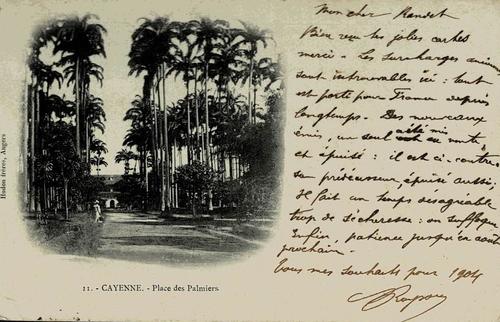 Mon cher Randet
Bien reçu tes jolies cartes
merci - Les surcharges
sont introuvables ici : tout
est parti pour France depuis
longtemps. Des nouveaux
émis, un seul a été mis en vente
et épuisé : il est ci-contre
son prédécesseur, épuisé aussi.
Il fait un temps désagréable
trop de sécheresse : on suffoque
Enfin, patience jusqu'en août
prochain.
Tous mes souhaits pour 1904
Hudon frères, Angers
11. - CAYENNE. - Place des Palmiers.